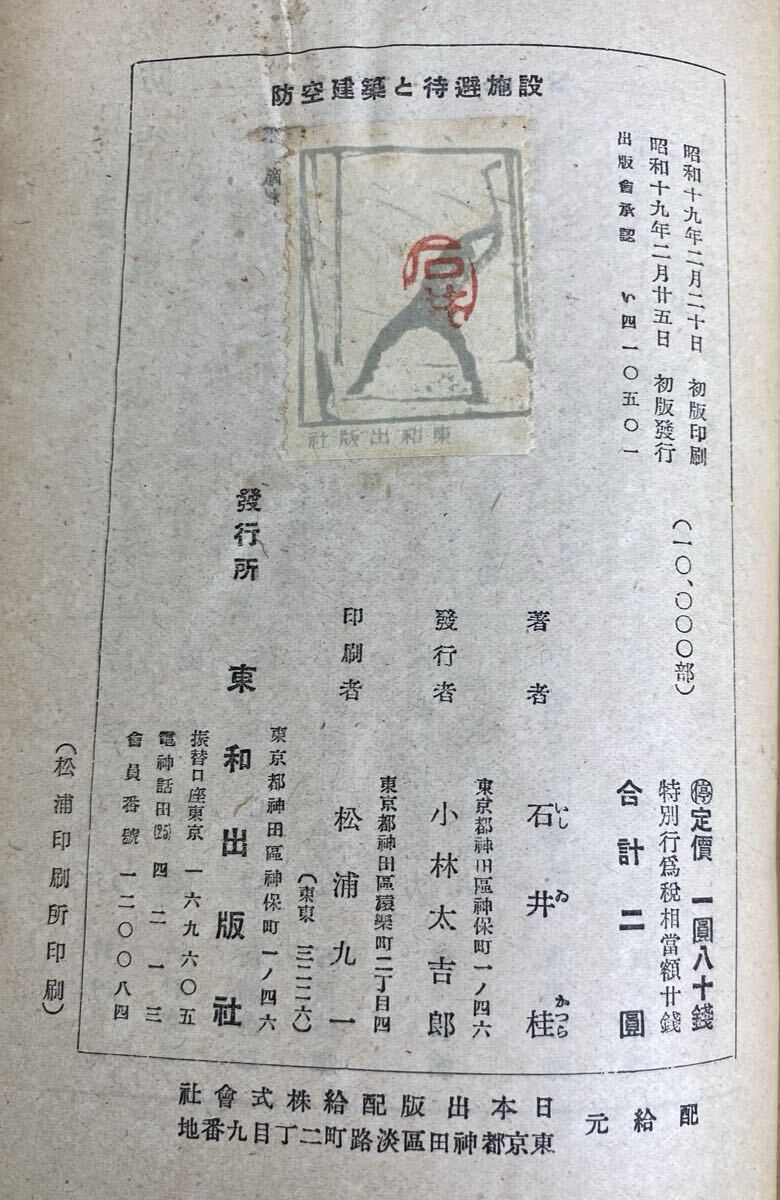 防空建築と待避施設
昭和十九年二月二十日 初版印刷
昭和十九年二月廿五日 初版發行
出版會承認 い四一〇五〇一
(一〇、〇〇〇部)
㊡定價 一圓八十錢
特別行爲税相當額廿錢
合計二圓
著者 石井桂
いしゐ かつら
東京都神田區神保町一ノ四六
發行者 小林太吉郎
東京都神田區猿樂町二丁目四
印刷者 松浦九一
(東東 三二二六)
東京都神田區神保町一ノ四六
發行所 東和出版社
振替口座東京 一六九六〇五
電話神田(25) 四二一三
會員番號 一二〇〇八四
(松浦印刷所印刷)
東和出版社
配給元
日本出版配給株式會社
東京都神田區淡路町二丁目九番地